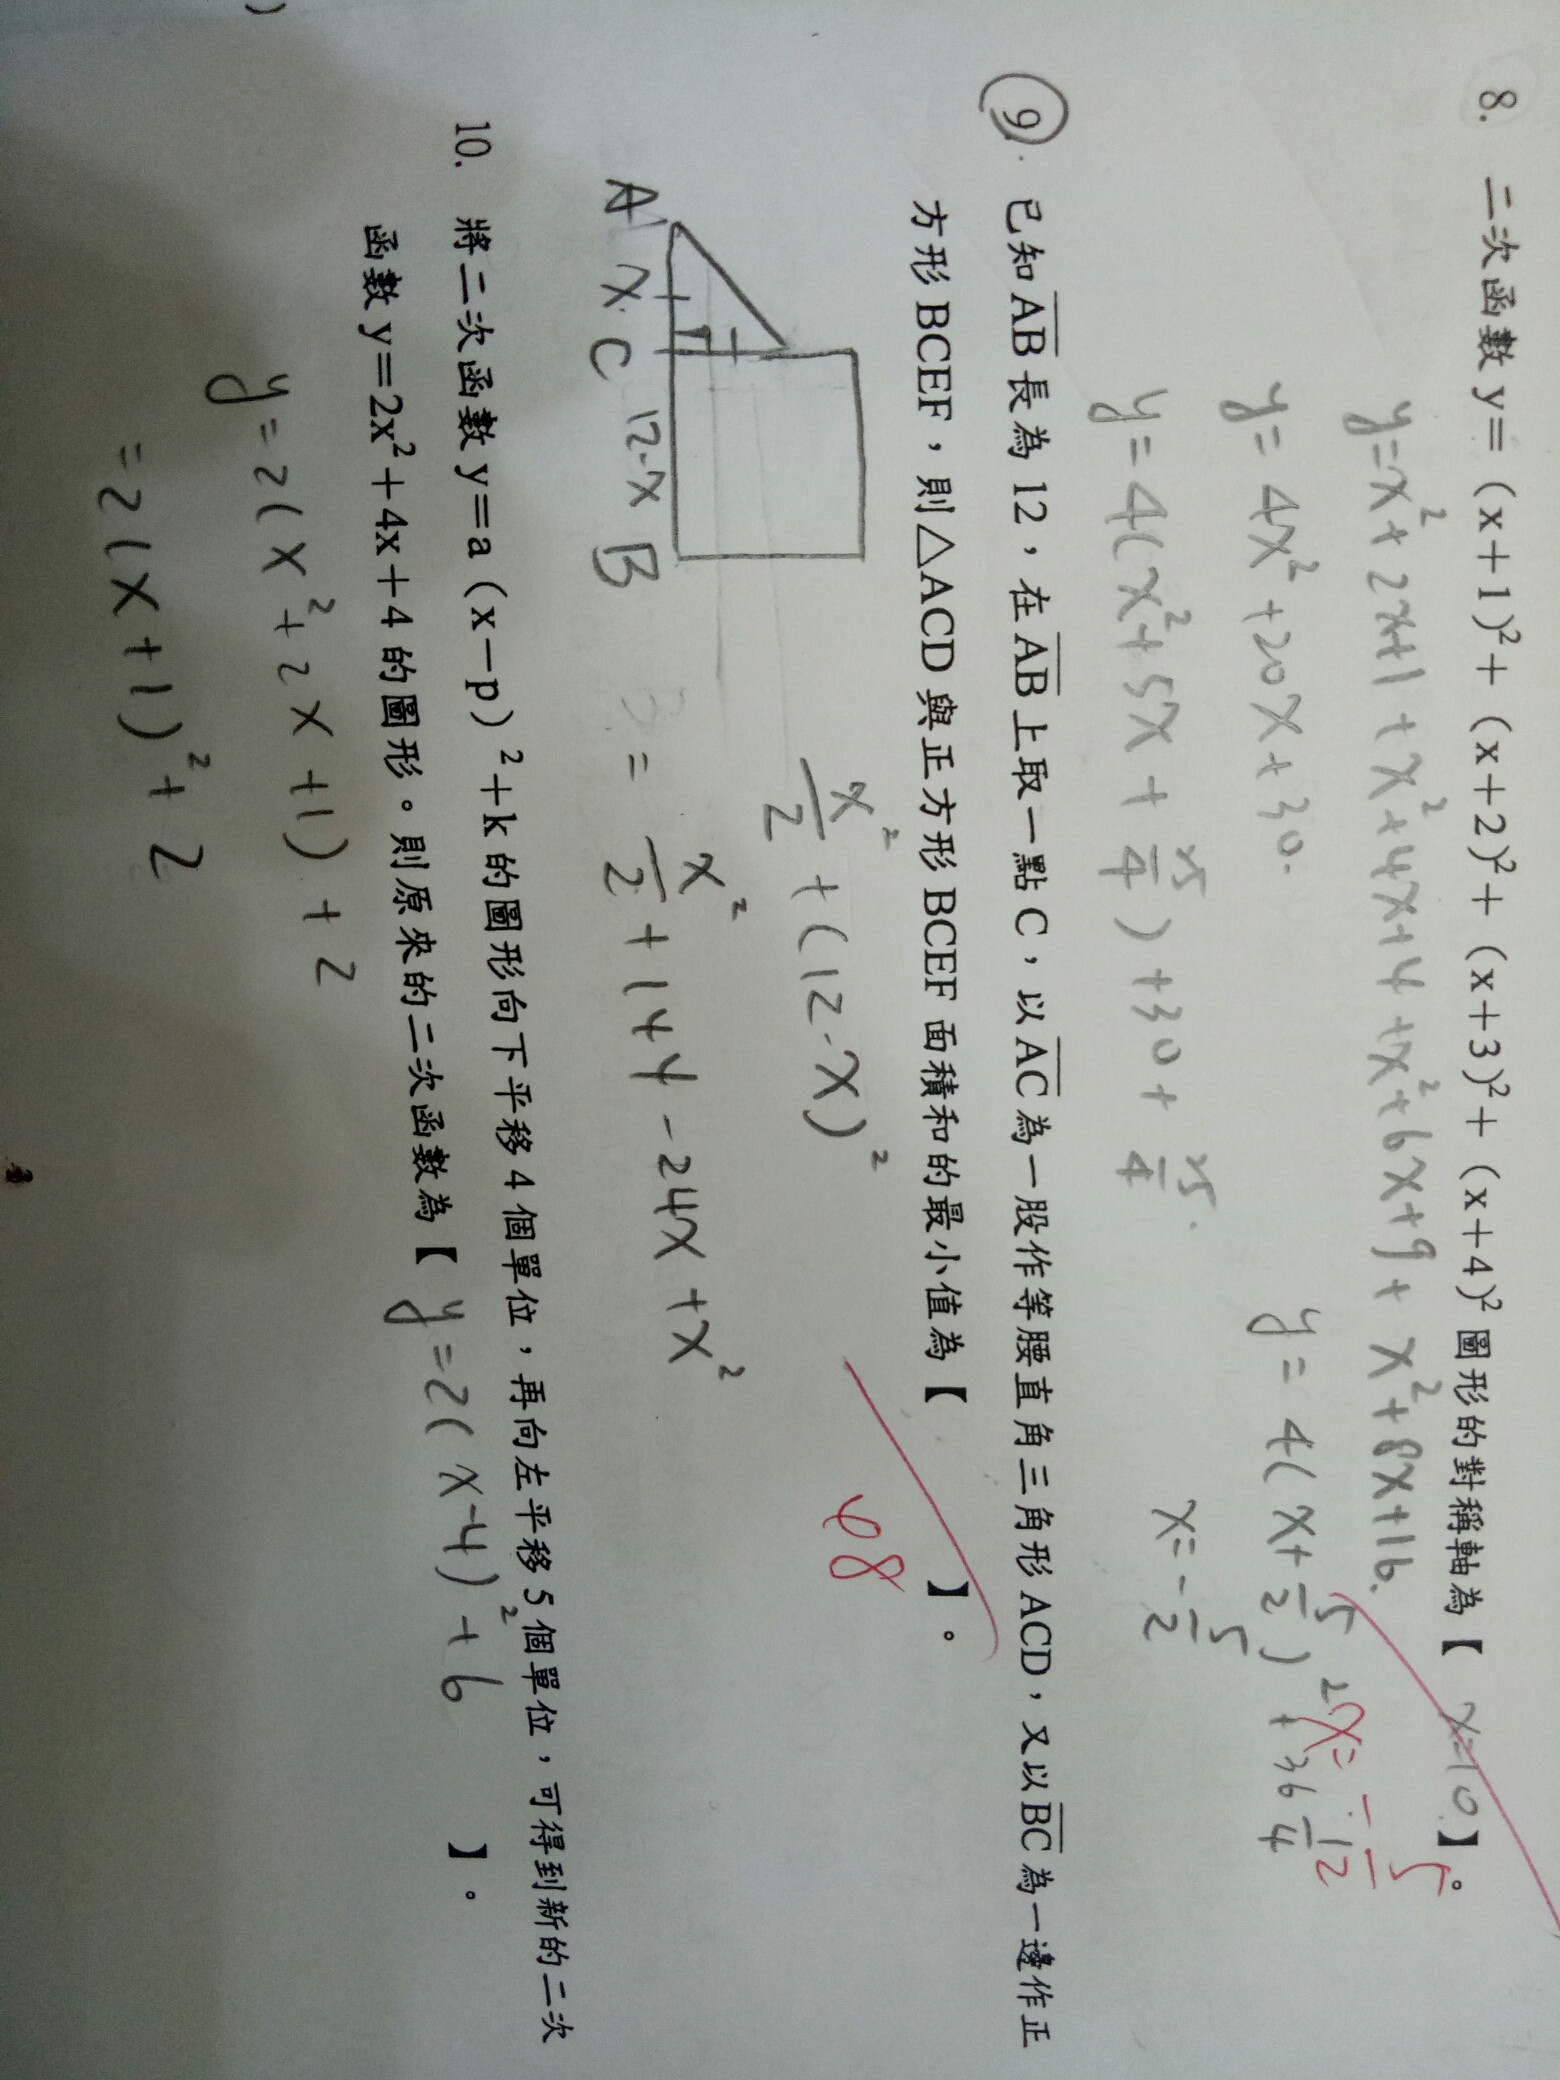 8. 二次函數 y=（x+1)²+（x+2)²+（x+3)²+（x+4)² 圖形的對稱軸為【 x=10 】。
y=x²+2x+1+x²+4x+4+x²+6x+9+x²+8x+16.
y=4x²+20x+30.
y=4(x²+5x+25/4)+30+25/4.
y=4(x+5/2)²+36 1/4
x=-5/2
x=-5/2
9. 已知AB長為12，在AB上取一點C，以AC為一股作等腰直角三角形ACD，又以BC為一邊作正
方形BCEF，則△ACD與正方形BCEF面積和的最小值為【 】。
48
x²/2+(12-x)²
A x C 12-x B
=x²/2+144-24x+x²
10. 將二次函數y=a（x-p）²+k的圖形向下平移4個單位，再向左平移5個單位，可得到新的二次
函數y=2x²+4x+4的圖形。則原來的二次函數為【 y=2(x-4)²+6 】。
y=2(x²+2x+1)+2
=2(x+1)²+2